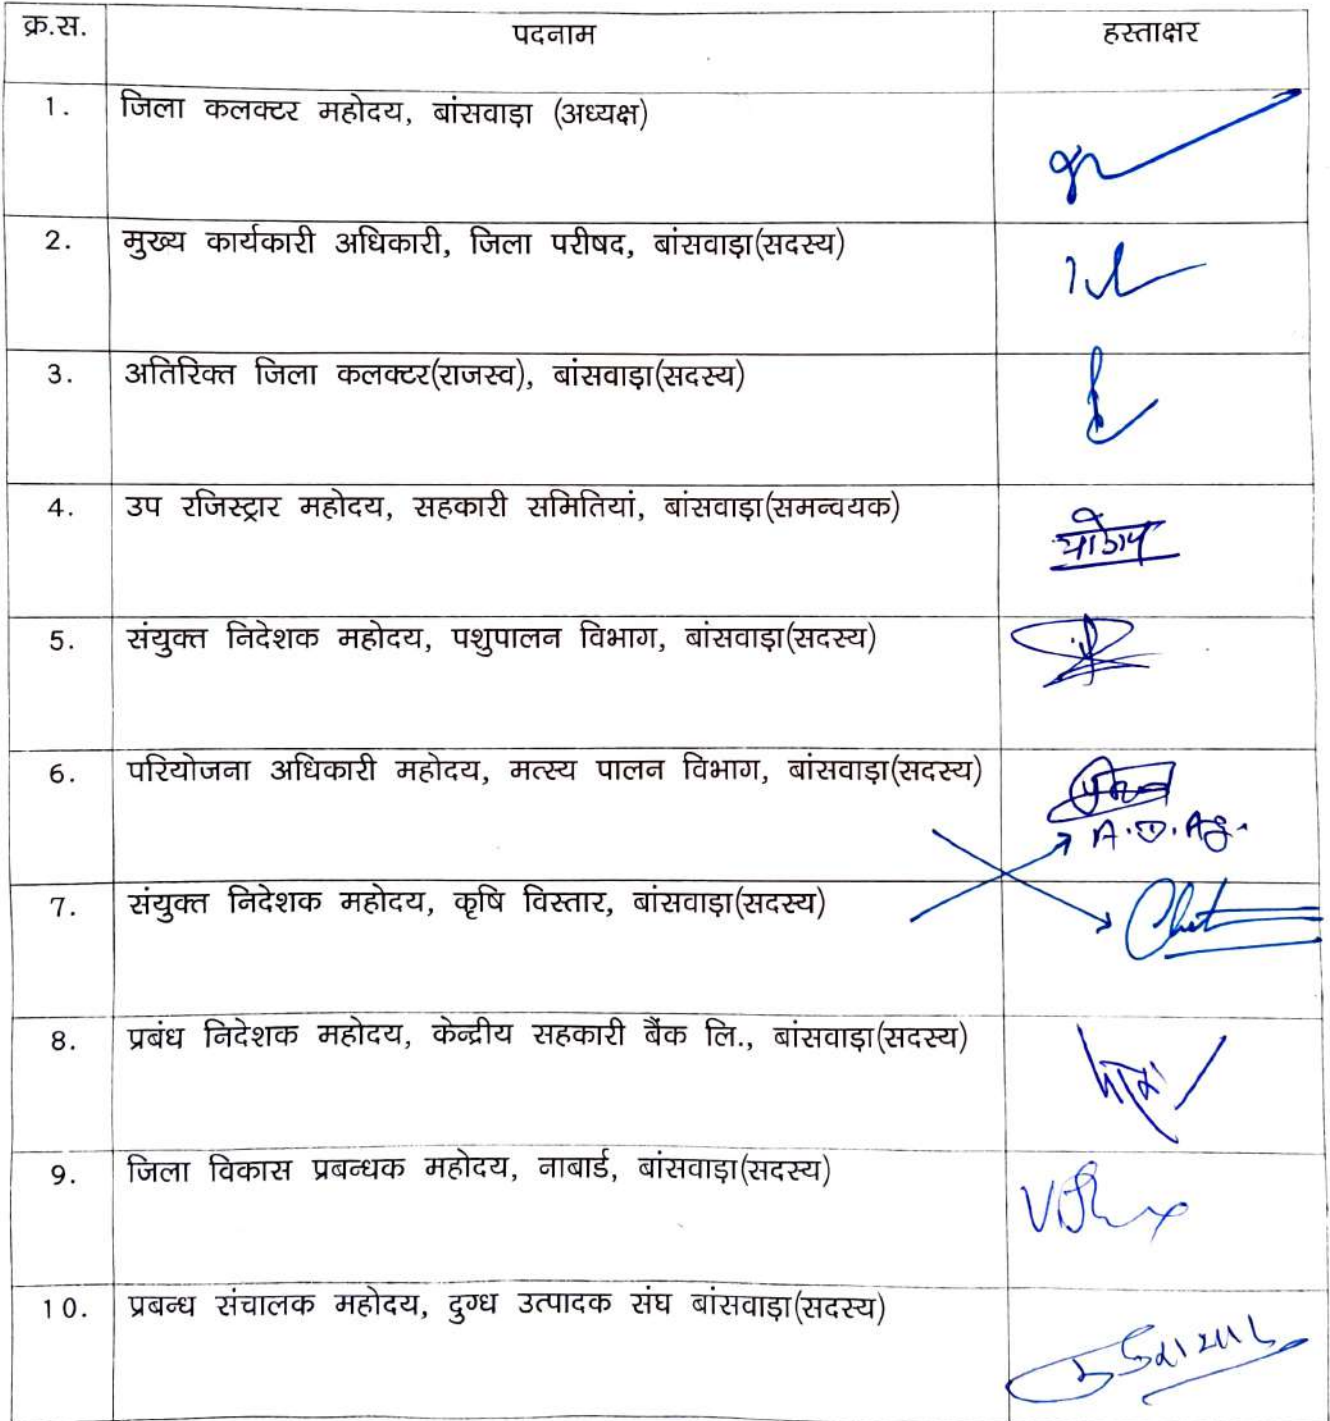 क्र.स. पदनाम हस्ताक्षर
1. जिला कलक्टर महोदय, बांसवाड़ा (अध्यक्ष)
2. मुख्य कार्यकारी अधिकारी, जिला परीषद, बांसवाड़ा(सदस्य)
3. अतिरिक्त जिला कलक्टर(राजस्व), बांसवाड़ा(सदस्य)
4. उप रजिस्ट्रार महोदय, सहकारी समितियां, बांसवाड़ा(समन्वयक)
5. संयुक्त निदेशक महोदय, पशुपालन विभाग, बांसवाड़ा(सदस्य)
6. परियोजना अधिकारी महोदय, मत्स्य पालन विभाग, बांसवाड़ा(सदस्य)
A.D.Ag.
7. संयुक्त निदेशक महोदय, कृषि विस्तार, बांसवाड़ा(सदस्य)
8. प्रबंध निदेशक महोदय, केन्द्रीय सहकारी बैंक लि., बांसवाड़ा(सदस्य)
9. जिला विकास प्रबन्धक महोदय, नाबार्ड, बांसवाड़ा(सदस्य)
10. प्रबन्ध संचालक महोदय, दुग्ध उत्पादक संघ बांसवाड़ा(सदस्य)